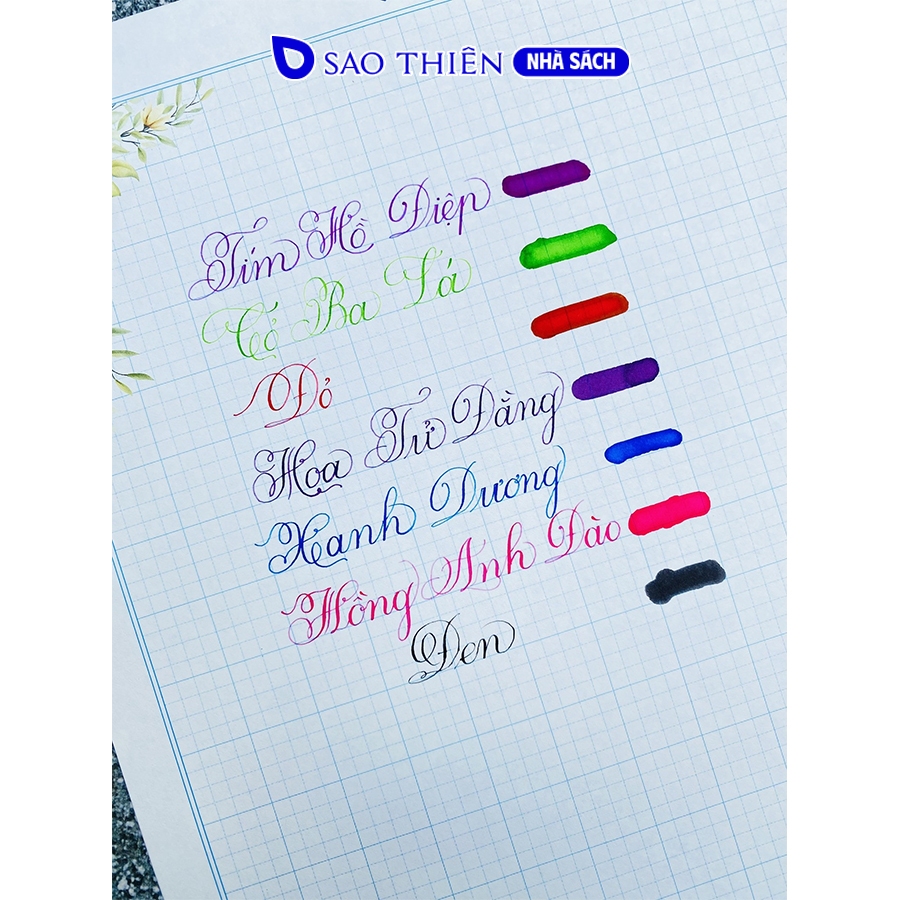 SAO THIÊN NHÀ SÁCH
Tím Hồ Điệp
Cỏ Ba Lá
Đỏ
Hoa Tử Đằng
Xanh Dương
Hồng Anh Đào
Đen